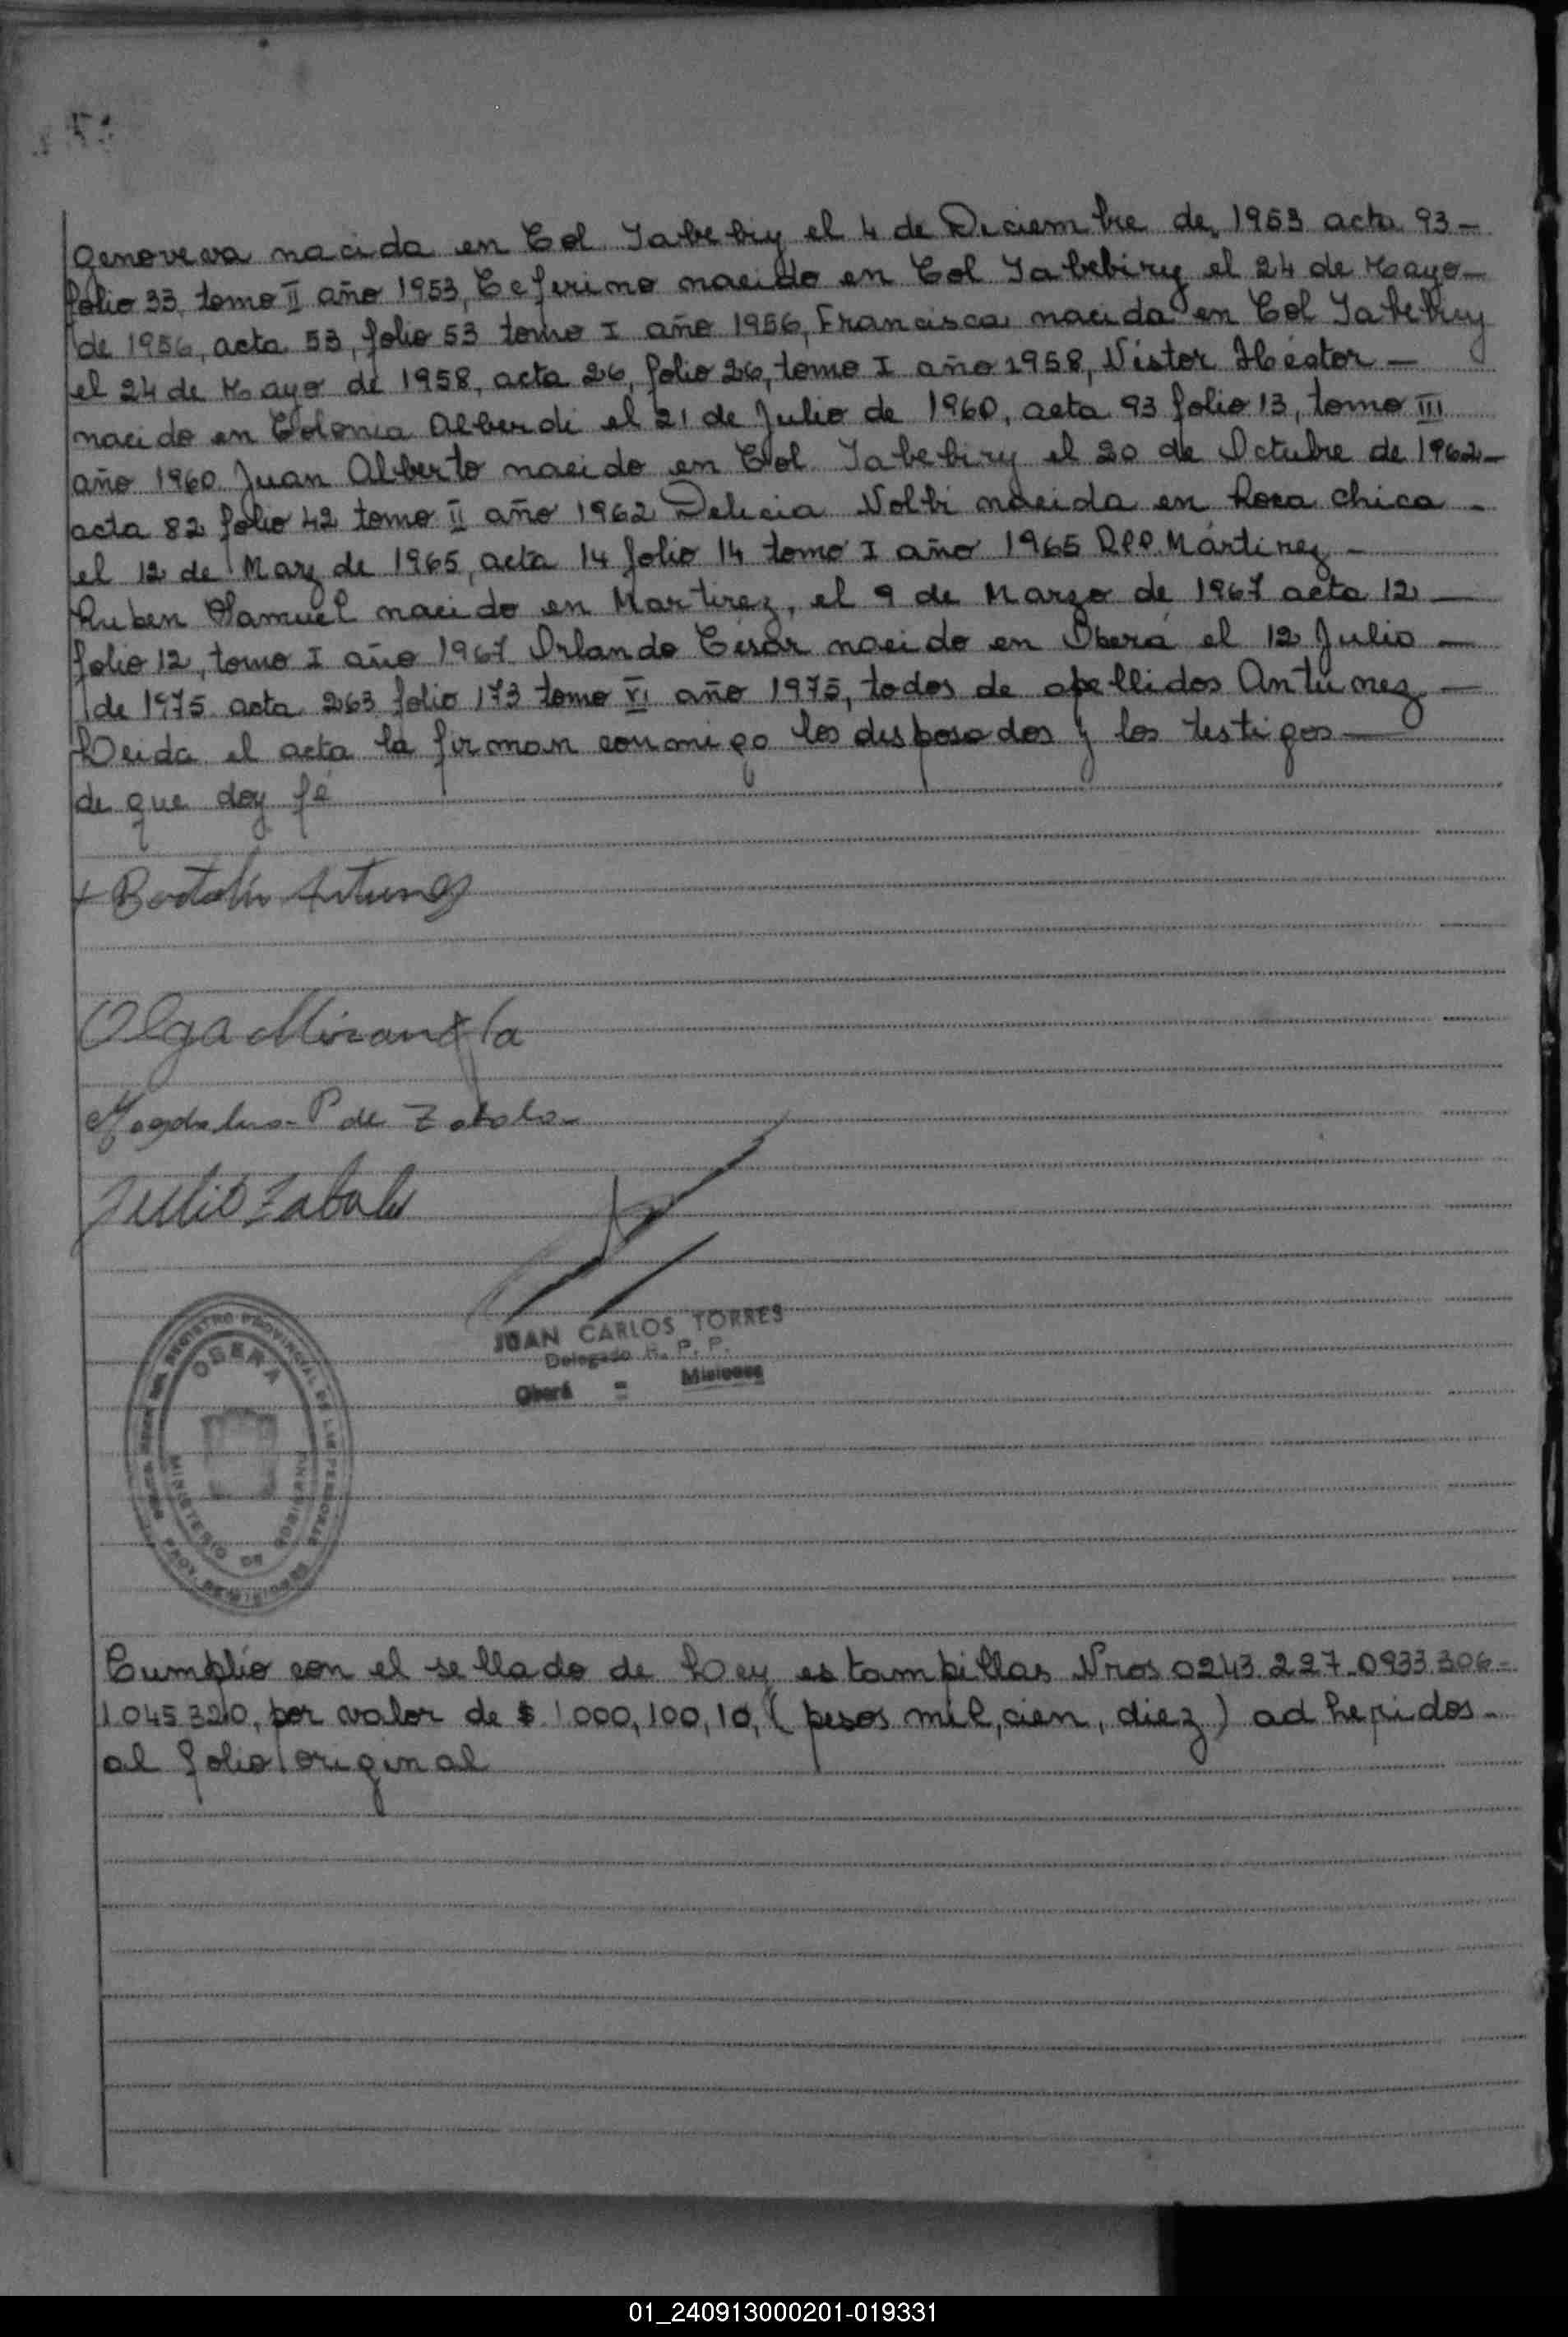 Genoveva nacida en Col Yabebiry el 4 de Diciembre de 1953 acta 93 -
folio 33, tomo II año 1953, Ceferino nacido en Col Yabebiry el 24 de Mayo -
de 1956, acta 53, folio 53 tomo I año 1956, Francisca nacida en Col Yabebiry
el 24 de Mayo de 1958, acta 26, folio 26, tomo I año 1958, Néstor Héctor -
nacido en Colonia Alberdi el 21 de Julio de 1960, acta 93 folio 13, tomo III
año 1960 Juan Alberto nacido en Col Yabebiry el 20 de Octubre de 1962 -
acta 82 folio 42 tomo II año 1962 Delicia Nolbi nacida en Roca Chica -
el 12 de Marz de 1965, acta 14 folio 14 tomo I año 1965 Mártirez -
Ruben Samuel nacido en Martirez, el 9 de Marzo de 1967 acta 12 -
folio 12, tomo I año 1967 Orlando César nacido en Oberá el 12 Julio -
de 1975 acta 263 folio 173 tomo VI año 1975, todos de apellidos Antúnez -
Leida el acta la firman conmigo los desposados y los testigos -
de que doy fé
+ Bartolin Antunez
Olga Miranda
Magdalena P de Zabala
Julio Zabala
JUAN CARLOS TORRES
Delegado R. P. P.
Oberá - Misiones
REGISTRO PROVINCIAL DE LAS PERSONAS
OBERA
MINISTERIO DE GOBIERNO
PROV. DE MISIONES
Cumplió con el sellado de Ley estampillas Nros 0243.227-0933.306-
1.045.320, por valor de $ 1000,100,10, (pesos mil, cien, diez) adheridos -
al folio original
01_240913000201-019331